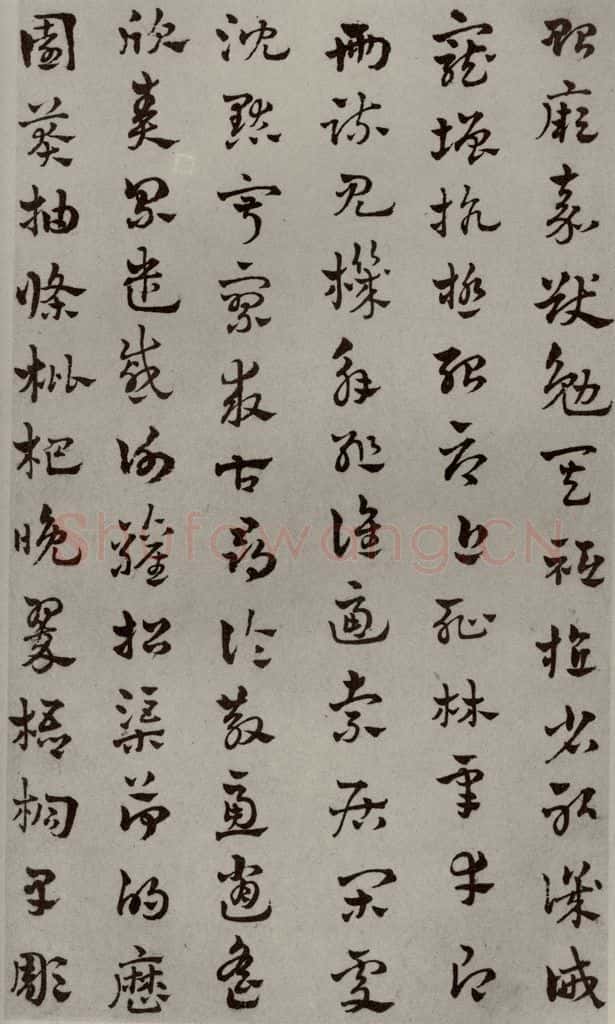 貽厥嘉猷勉其祗植省躬譏誡
寵增抗極殆辱近恥林皋幸即
兩疏見機解組誰逼索居閑處
沈默寂寥求古尋論散慮逍遙
欣奏累遣慼謝歡招渠荷的歷
園莽抽條枇杷晚翠梧桐早彫
Shufawang.CN